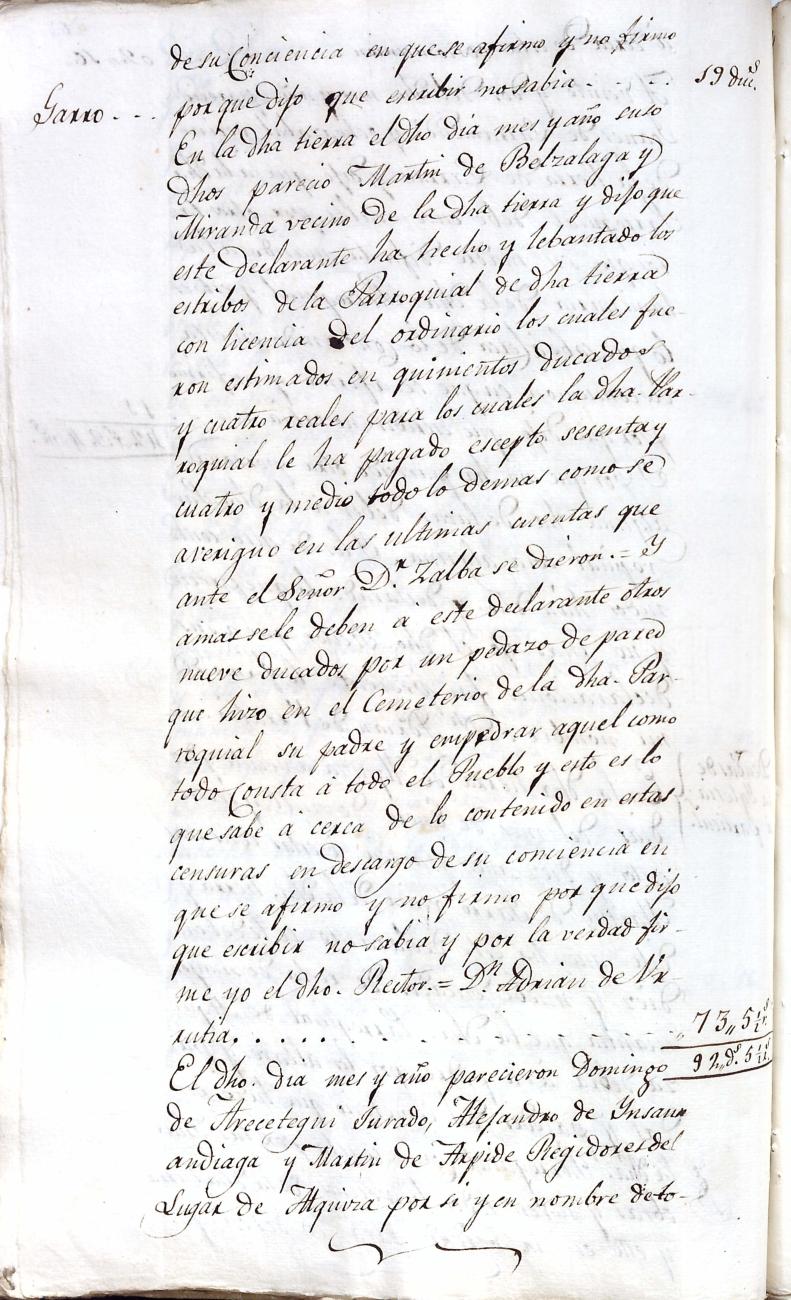 de su Conciencia en que se afirmo y no firmo
por que dijo que escribir no sabia . . . . 19 duc.s
Garro . . .
En la dha tierra el dho dia mes y año suso
dhos parecio Martin de Belzalaga y
Miranda vecino de la dha tierra y dijo que
este declarante ha hecho y lebantado los
estribos de la Parroquial de dha tierra
con licencia del ordinario los cuales fue-
ron estimados en quinientos ducados
y cuatro reales para los cuales la dha. Par-
roquial le ha pagado escepto sesenta y
cuatro y medio todo lo demas como se
averiguo en las ultimas cuentas que
ante el Señor D.r Zalba se dieron. = Y
amas se le deben á este declarante otros
nueve ducados por un pedazo de pared
que hizo en el Cementerio de la dha. Par-
roquial su padre y empedrar aquel como
todo Consta á todo el Pueblo y esto es lo
que sabe á cerca de lo contenido en estas
censuras en descargo de su conciencia en
que se afirmo y no firmo por que dijo
que escribir no sabia y por la verdad fir-
me yo el dho. Rector. = D.n Adrian de Ur-
rutia. . . . . . . . . . „ 73„ 5 1/2 r.s
92„ d.s 5 1/2 r.s
El dho. dia mes y año parecieron Domingo
de Arecetegui Jurado, Alejandro de Insaur
andiaga y Martin de Arpide Regidores del
Lugar de Alquiza por si y en nombre de to-